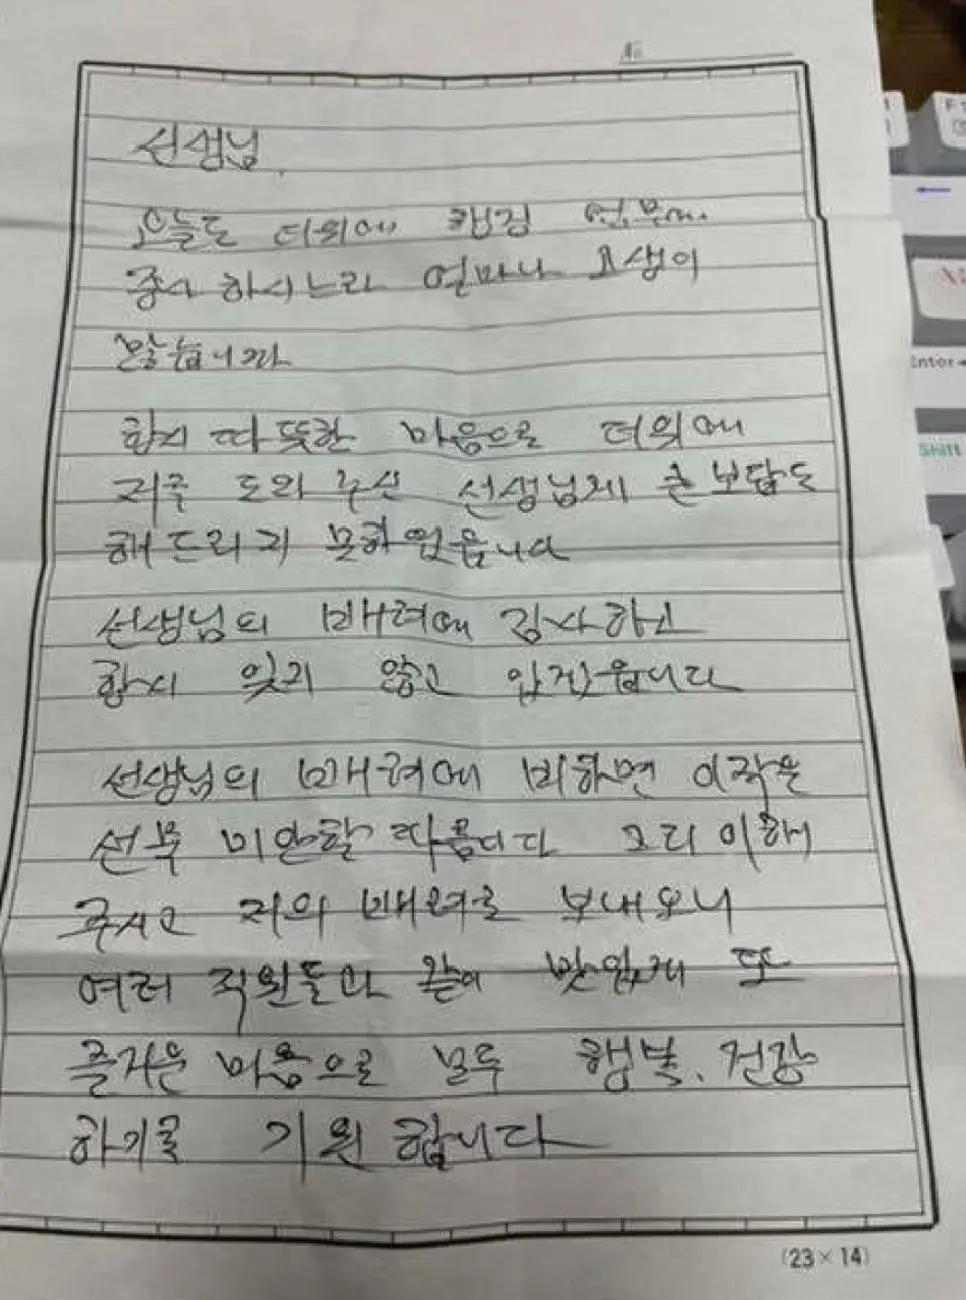 선생님
오늘도 더위에 행정 업무에
종사 하시느라 얼마나 고생이
많습니까
항시 따뜻한 마음으로 더위에
저를 도와주신 선생님께 큰 보답도
해드리지 못하였읍니다
선생님의 배려에 감사하고
항시 잊지 않고 있겠읍니다
선생님의 배려에 비하면 이 작은
선물 미안할 따름니다 그리 이해
주시고 저의 배려로 보내오니
여러 직원들과 같이 맛있게 또
즐거운 마음으로 모두 행복, 건강
하기를 기원합니다
(23×14)
Enter
Shift